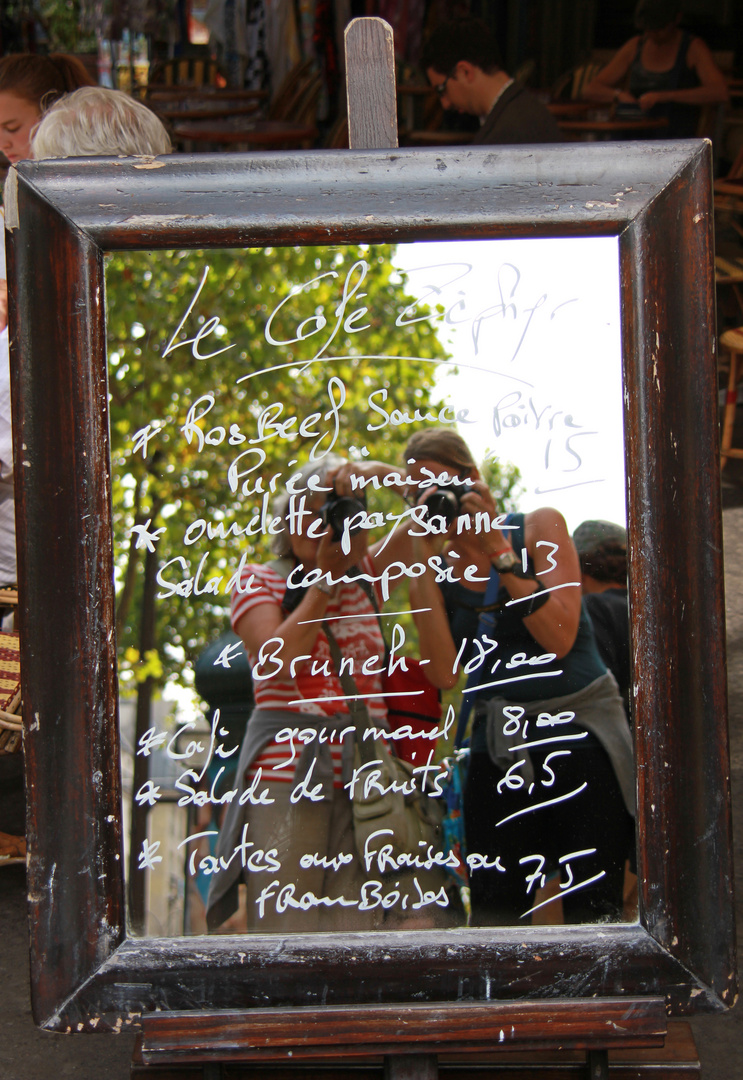 Le Café Zéphyr
* RosBeef Sauce Poivre
15
Purée maison
* omelette paysanne
Salade composée 13
* Brunch - 18,00
* Café gourmand 8,00
* Salade de Fruits 6,5
* Tartes aux Fraises ou 7,5
FramBoises